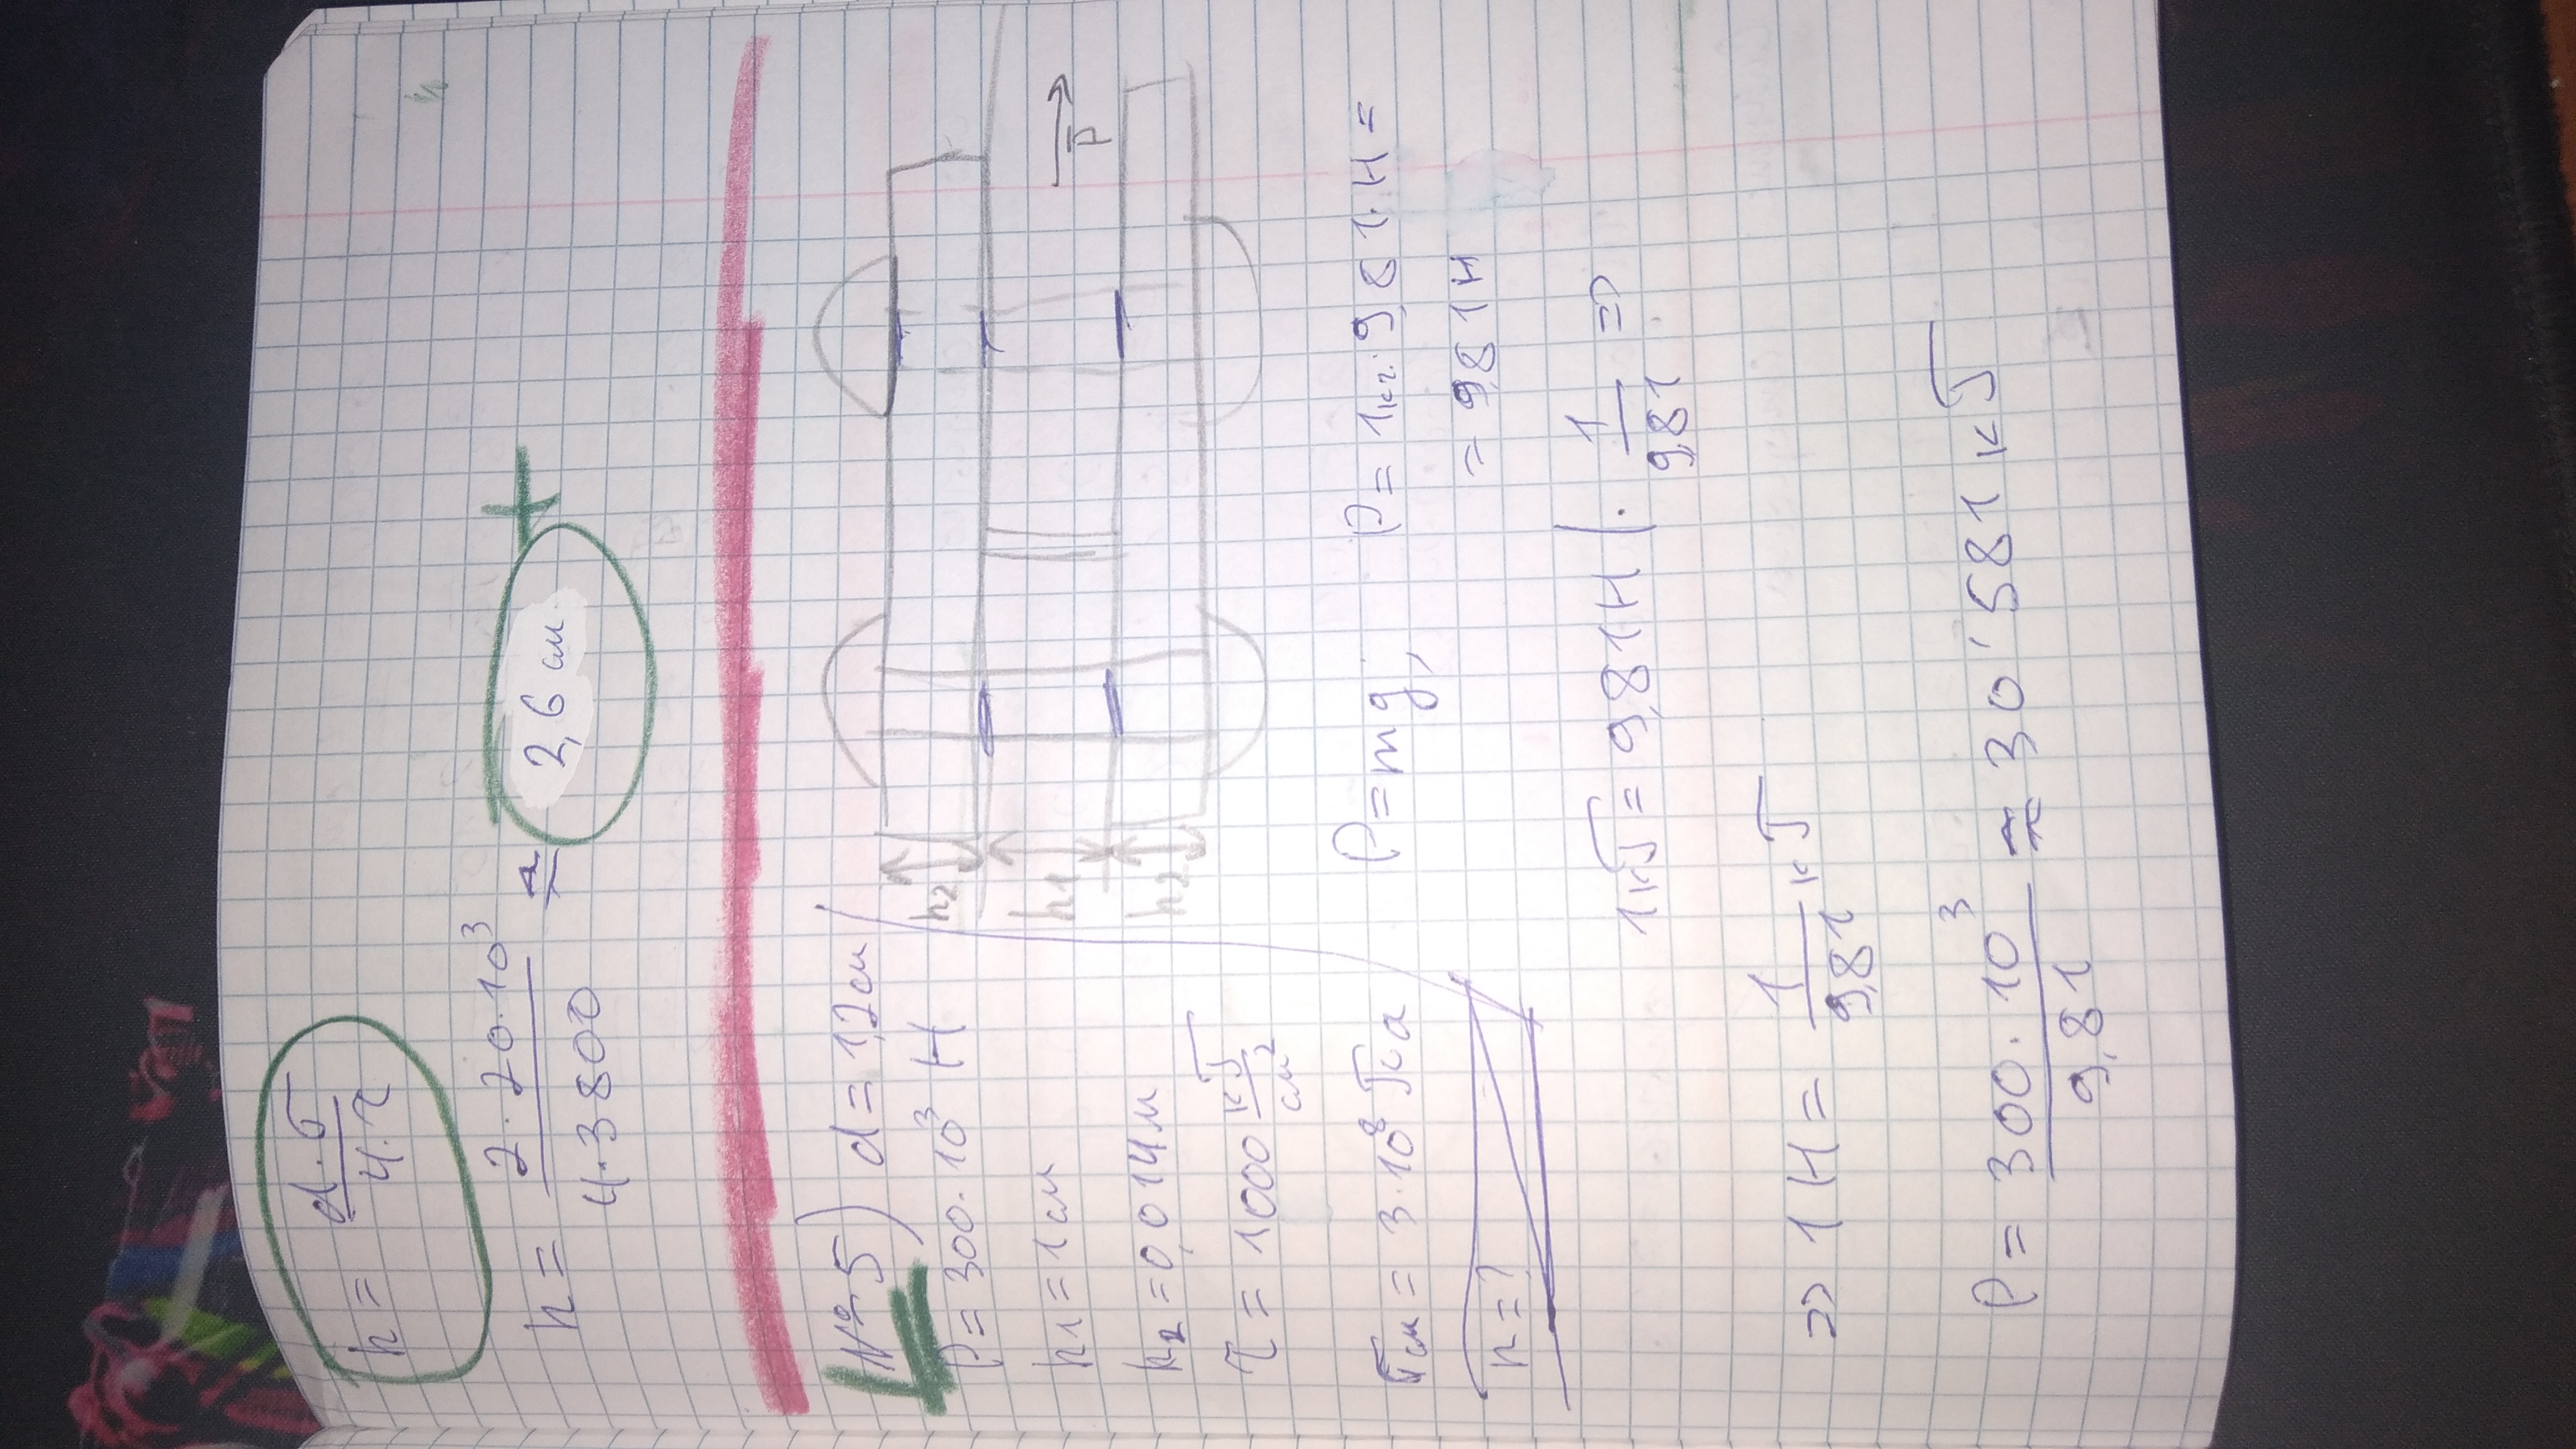 h = d·σ / 4·τ
h = 2·20·10³ / 4·3800 ≈ 2,6 см.
+
№5) d = 1,2 см
P = 300·10³ Н
h₁ = 1 см
h₂ = 0,014 м
τ = 1000 кГ/см²
σсм = 3·10⁸ Па
n = ?
h₂
h₁
h₂
P
P = mg; P = 1кг·9,81·Н =
= 9,81 Н
1кГ = 9,81Н | · 1/9,81 =>
=> 1 Н = 1/9,81 кГ
P = 300·10³ / 9,81 ≈ 30'581 кГ